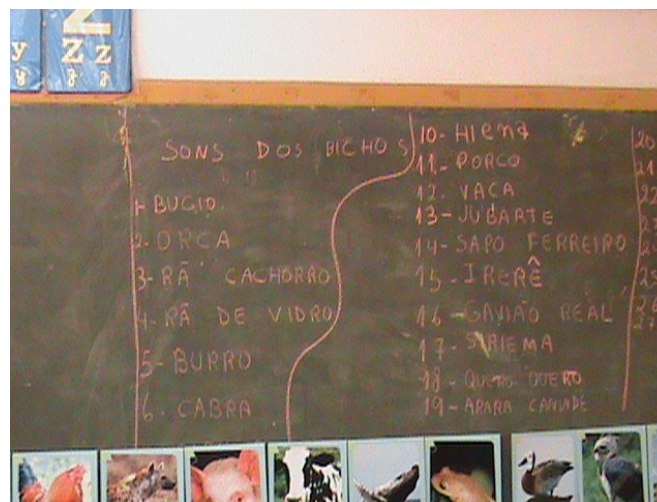 y
y
Z
Z z
z z
SONS DOS BICHOS
1- BUGIO.
2- ORCA
3- RÃ CACHORRO
4- RÃ DE VIDRO
5- BURRO
6. CABRA
10- HIENA
11- PORCO
12. VACA
13- JUBARTE
14- SAPO FERREIRO
15- IRERÊ
16- GAVIÃO REAL
17- SIRIEMA
18- QUERO QUERO
19- ARARA CANINDÉ
20
21
22